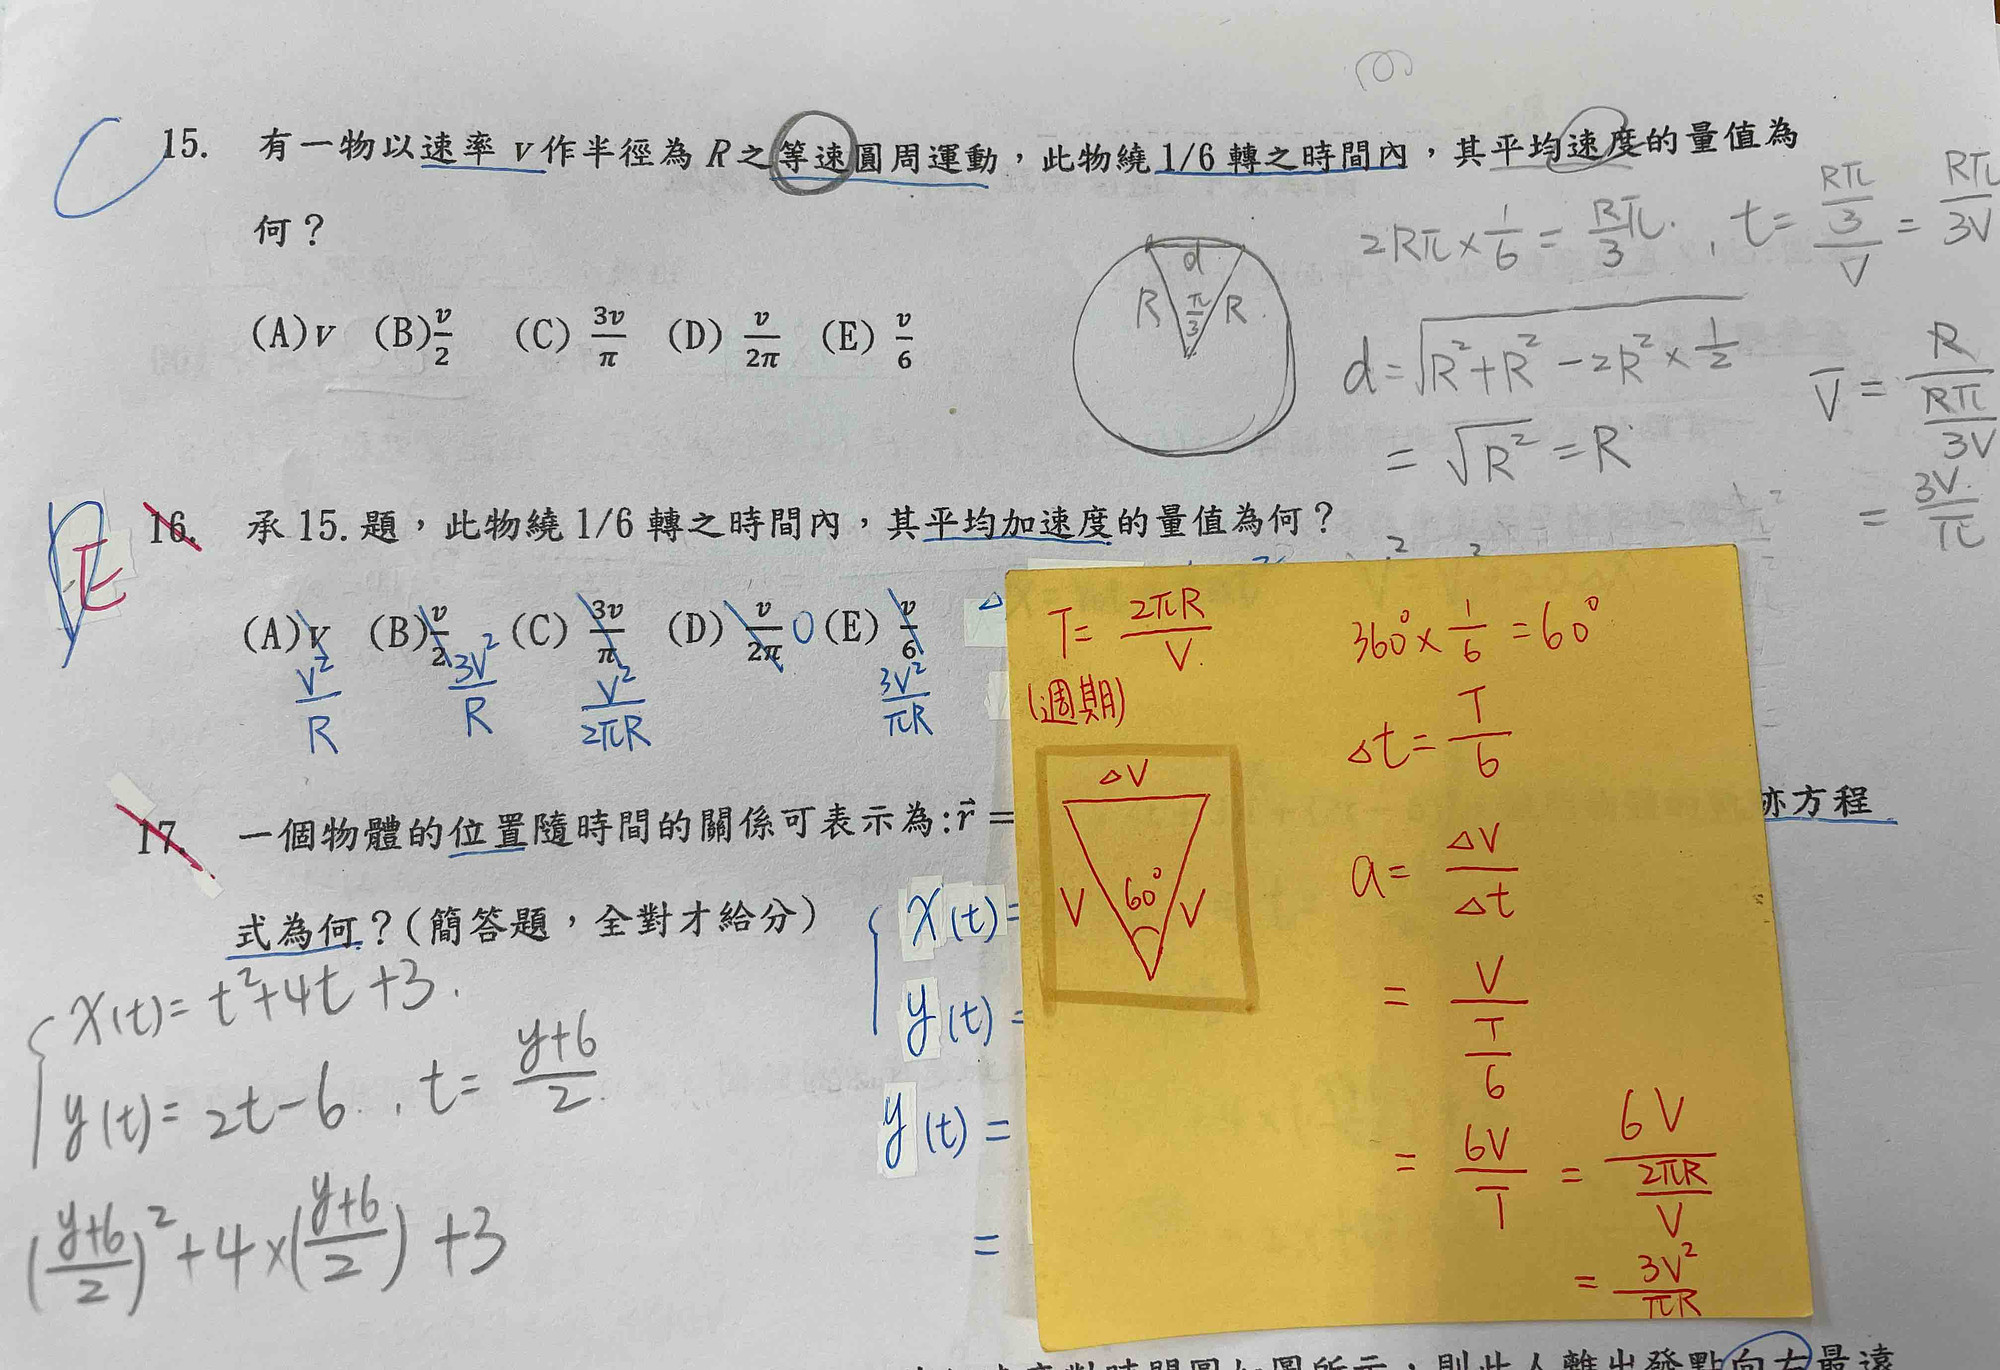 C 15. 有一物以速率 v 作半徑為 R 之等速圓周運動，此物繞 1/6 轉之時間內，其平均速度的量值為
何？
(A)v (B)v/2 (C) 3v/π (D) v/2π (E) v/6
d
R π/3 R
2Rπ×1/6 = R/3 π. , t = (Rπ/3)/V = Rπ/3V
d = √(R²+R²-2R²×1/2)
= √R² = R
V̄ = R/(Rπ/3V)
= 3V/π
E 16. 承 15. 題，此物繞 1/6 轉之時間內，其平均加速度的量值為何？
(A)v (B)v/2 (C) 3v/π (D) v/2π 0 (E) v/6
V²/R 3V²/R V²/2πR 3V²/πR
T = 2πR/V
(週期)
360°×1/6 = 60°
Δt = T/6
ΔV
V 60° V
a = ΔV/Δt
= V/(T/6)
= 6V/T = 6V/(2πR/V)
= 3V²/πR
17. 一個物體的位置隨時間的關係可表示為:r⃗ =
跡方程
式為何？(簡答題，全對才給分)
x(t)=
y(t)=
y(t)=
=
x(t)= t²+4t+3.
y(t)= 2t-6. , t = (y+6)/2
((y+6)/2)²+4×((y+6)/2)+3
則此人離出發點向右最遠